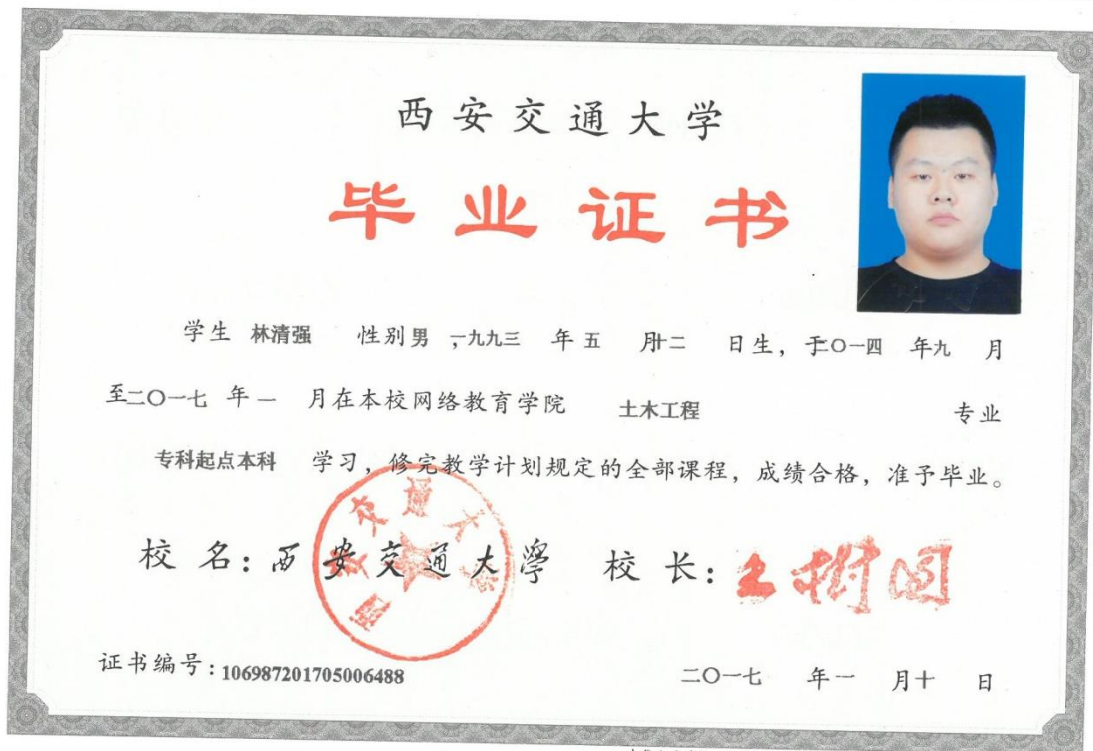 西安交通大学
毕业证书
学生 林清强 性别 男 ,一九九三 年 五 月 十二 日生，于二〇一四 年 九 月
至二〇一七 年 一 月在本校网络教育学院 土木工程 专业
专科起点本科 学习，修完教学计划规定的全部课程，成绩合格，准予毕业。
校 名：西安交通大學 校 长：王树国
西安交通大学
证书编号：106987201705006488 二〇一七 年 一 月 十 日